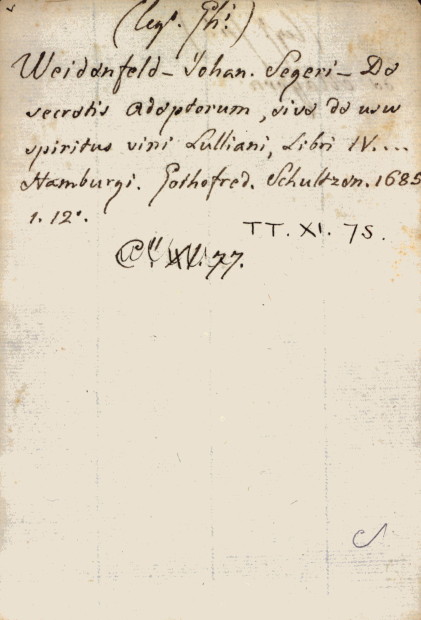 (leg. Ph.)
Weidenfeld - Johan. Segeri - De
secretis Adeptorum, sive de usu
spiritus vini Lulliani, Libri IV....
Hamburgi. Gothofred. Schultzen. 1685
1. 12°.
TT. XI. 75.
XV. 77.